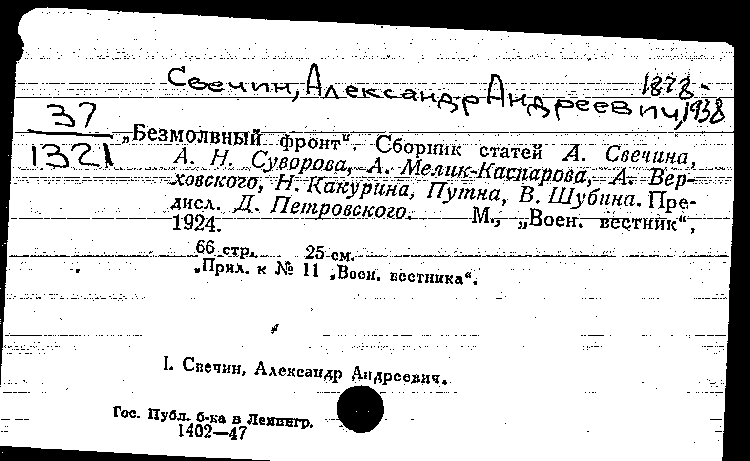 Свечин, Александр Андреевич, 1878-1938
37
1321
„Безмолвный фронт“. Сборник статей А. Свечина,
А. Н. Суворова, А. Мелик-Каспарова, А. Вер-
ховского, Н. Какурина, Путна, В. Шубина. Пре-
дисл. Д. Петровского. М., „Воен. вестник“,
1924.
66 стр. 25 см.
„Прил. к № 11 „Воен. вестника“.
I. Свечин, Александр Андреевич.
Гос. Публ. б-ка в Ленингр.
1402—47